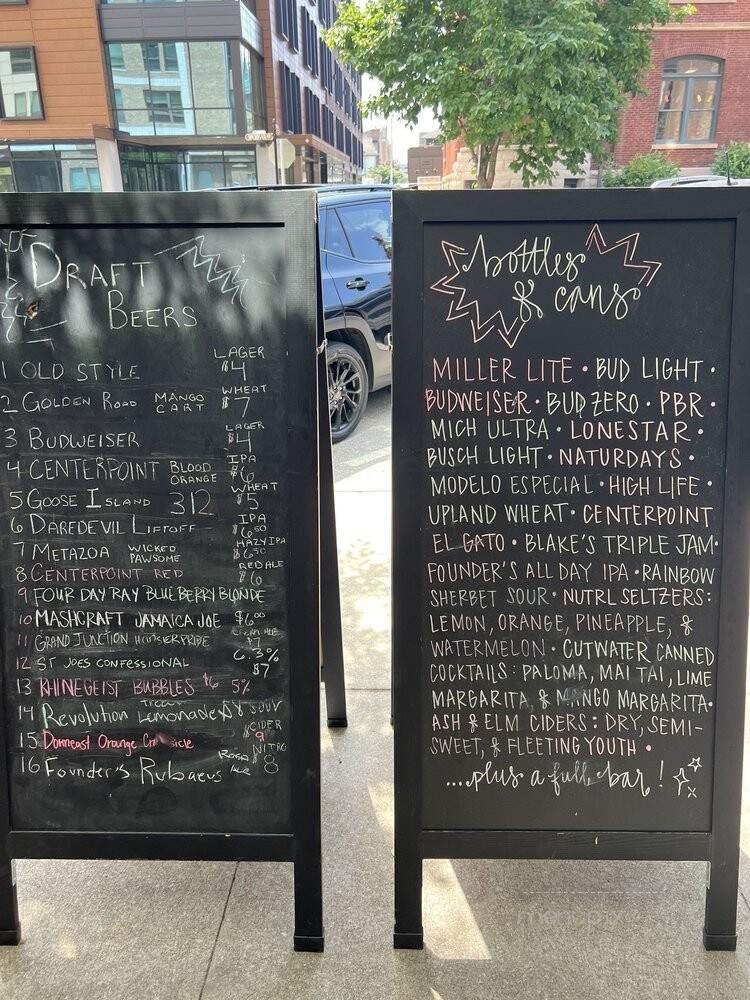 DRAFT
BEERS
1 OLD STYLE LAGER $4
2 GOLDEN ROAD MANGO CART WHEAT $7
3 BUDWEISER LAGER $4
4 CENTERPOINT BLOOD ORANGE IPA $6
5 GOOSE ISLAND 312 WHEAT $5
6 DAREDEVIL LIFTOFF IPA $6.50
7 METAZOA WICKED PAWSOME HAZY IPA $6.50
8 CENTERPOINT RED RED ALE $6
9 FOUR DAY RAY BLUEBERRY BLONDE
10 MASHCRAFT JAMAICA JOE $6.00
11 GRAND JUNCTION HOOSIER PRIDE CREAM ALE $7
12 ST JOES CONFESSIONAL 6.3% $7
13 RHINEGEIST BUBBLES $6 5%
14 Revolution Lemonade SOUR
15 Downeast Orange CIDER 9
16 Founder's Rubaeus NITRO 8
bottles
& cans
MILLER LITE • BUD LIGHT •
BUDWEISER • BUD ZERO • PBR •
MICH ULTRA • LONESTAR •
BUSCH LIGHT • NATURDAYS •
MODELO ESPECIAL • HIGH LIFE •
UPLAND WHEAT • CENTERPOINT
EL GATO • BLAKE'S TRIPLE JAM •
FOUNDER'S ALL DAY IPA • RAINBOW
SHERBET SOUR • NUTRL SELTZERS:
LEMON, ORANGE, PINEAPPLE, &
WATERMELON • CUTWATER CANNED
COCKTAILS: PALOMA, MAI TAI, LIME
MARGARITA, & MANGO MARGARITA •
ASH & ELM CIDERS: DRY, SEMI-
SWEET, & FLEETING YOUTH •
...plus a full bar!